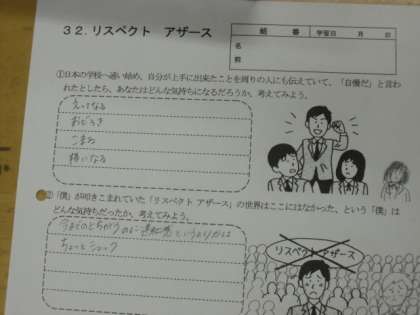 32.リスペクト アザース
組 番 学習日 月 日
名
前
①日本の学校へ通い始め、自分が上手に出来たことを周りの人にも伝えていて、「自慢だ」と言わ
れたとしたら、あなたはどんな気持ちになるだろうか、考えてみよう。
えってなる
おどろき
こまる
嫌になる
②「僕」が叩きこまれていた「リスペクト アザース」の世界はここにはなかった、という「僕」は
どんな気持ちだったか、考えてみよう。
今までのとちがうのに というよりかは
ちょっとショック
リスペクト アザース